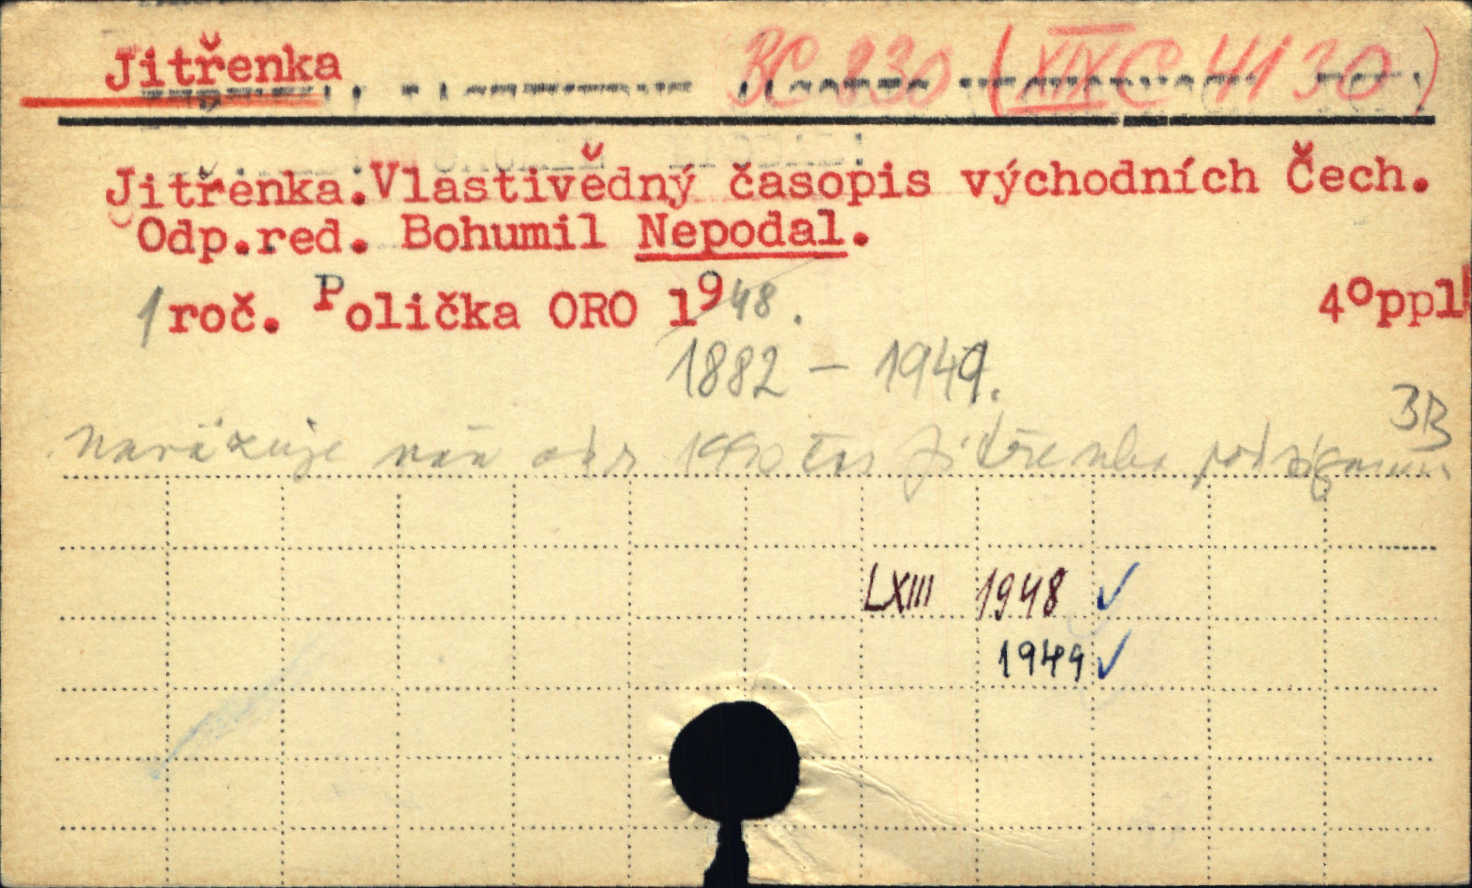 Jitřenka BC 830 (XIX C 4130)
Jitřenka. Vlastivědný časopis východních Čech.
Odp.red. Bohumil Nepodal.
1 roč. Polička ORO 1948. 4°ppl
1882 – 1949.
BB
navazuje čas Jitřenka pod
LXIII 1948 ✓
1949 ✓